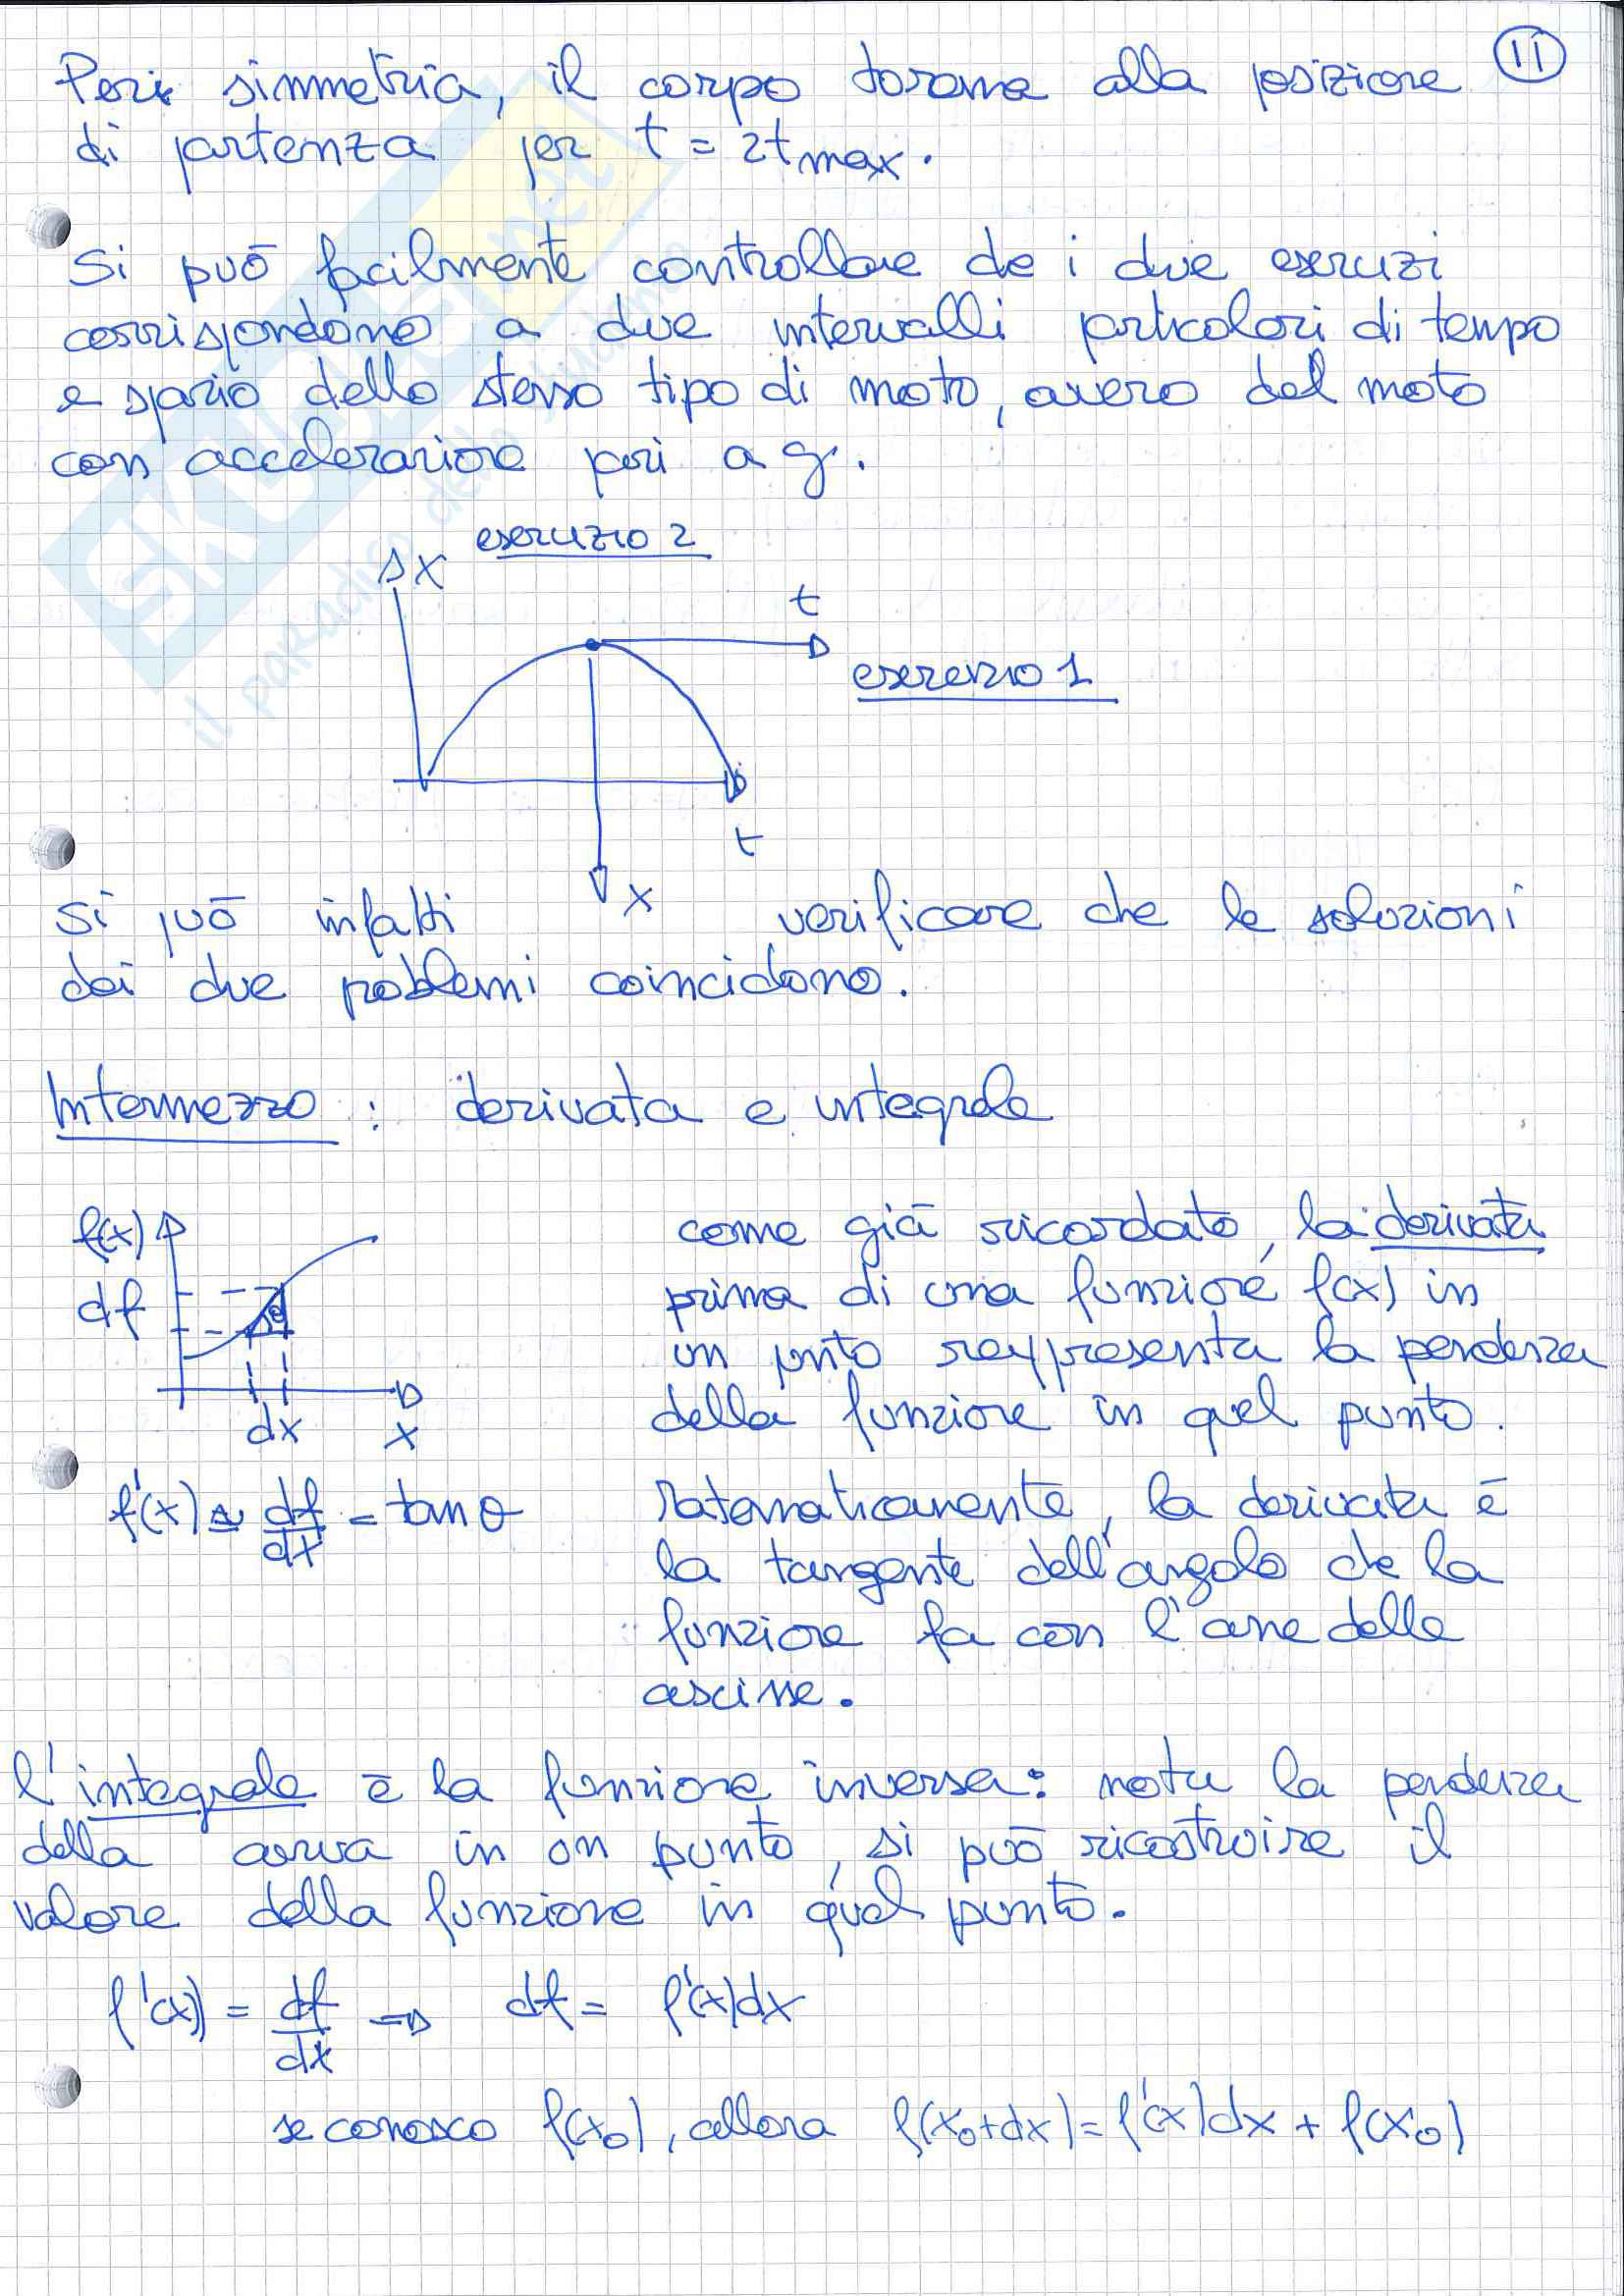 Per simmetria, il corpo torna alla posizione 11
di partenza per t = 2tmax.
Si può facilmente controllare che i due esercizi
corrispondono a due intervalli particolari di tempo
e spazio dello stesso tipo di moto, ovvero del moto
con accelerazione pari a g.
esercizio 2
x
t
esercizio 1
t
x
Si può infatti verificare che le soluzioni
dei due problemi coincidono.
Intermezzo: derivata e integrale
f(x)
df
θ
dx x
come già ricordato, la derivata
prima di una funzione f(x) in
un punto rappresenta la pendenza
della funzione in quel punto.
f'(x) ≃ df/dx = tan θ
Matematicamente, la derivata è
la tangente dell'angolo che la
funzione fa con l'asse delle
ascisse.
l'integrale è la funzione inversa: nota la pendenza
della curva in un punto, si può ricostruire il
valore della funzione in quel punto.
f'(x) = df/dx ⇒ df = f'(x)dx
se conosco f(x₀), allora f(x₀+dx) = f'(x)dx + f(x₀)
SKUOLA.net
il paradiso dello studente